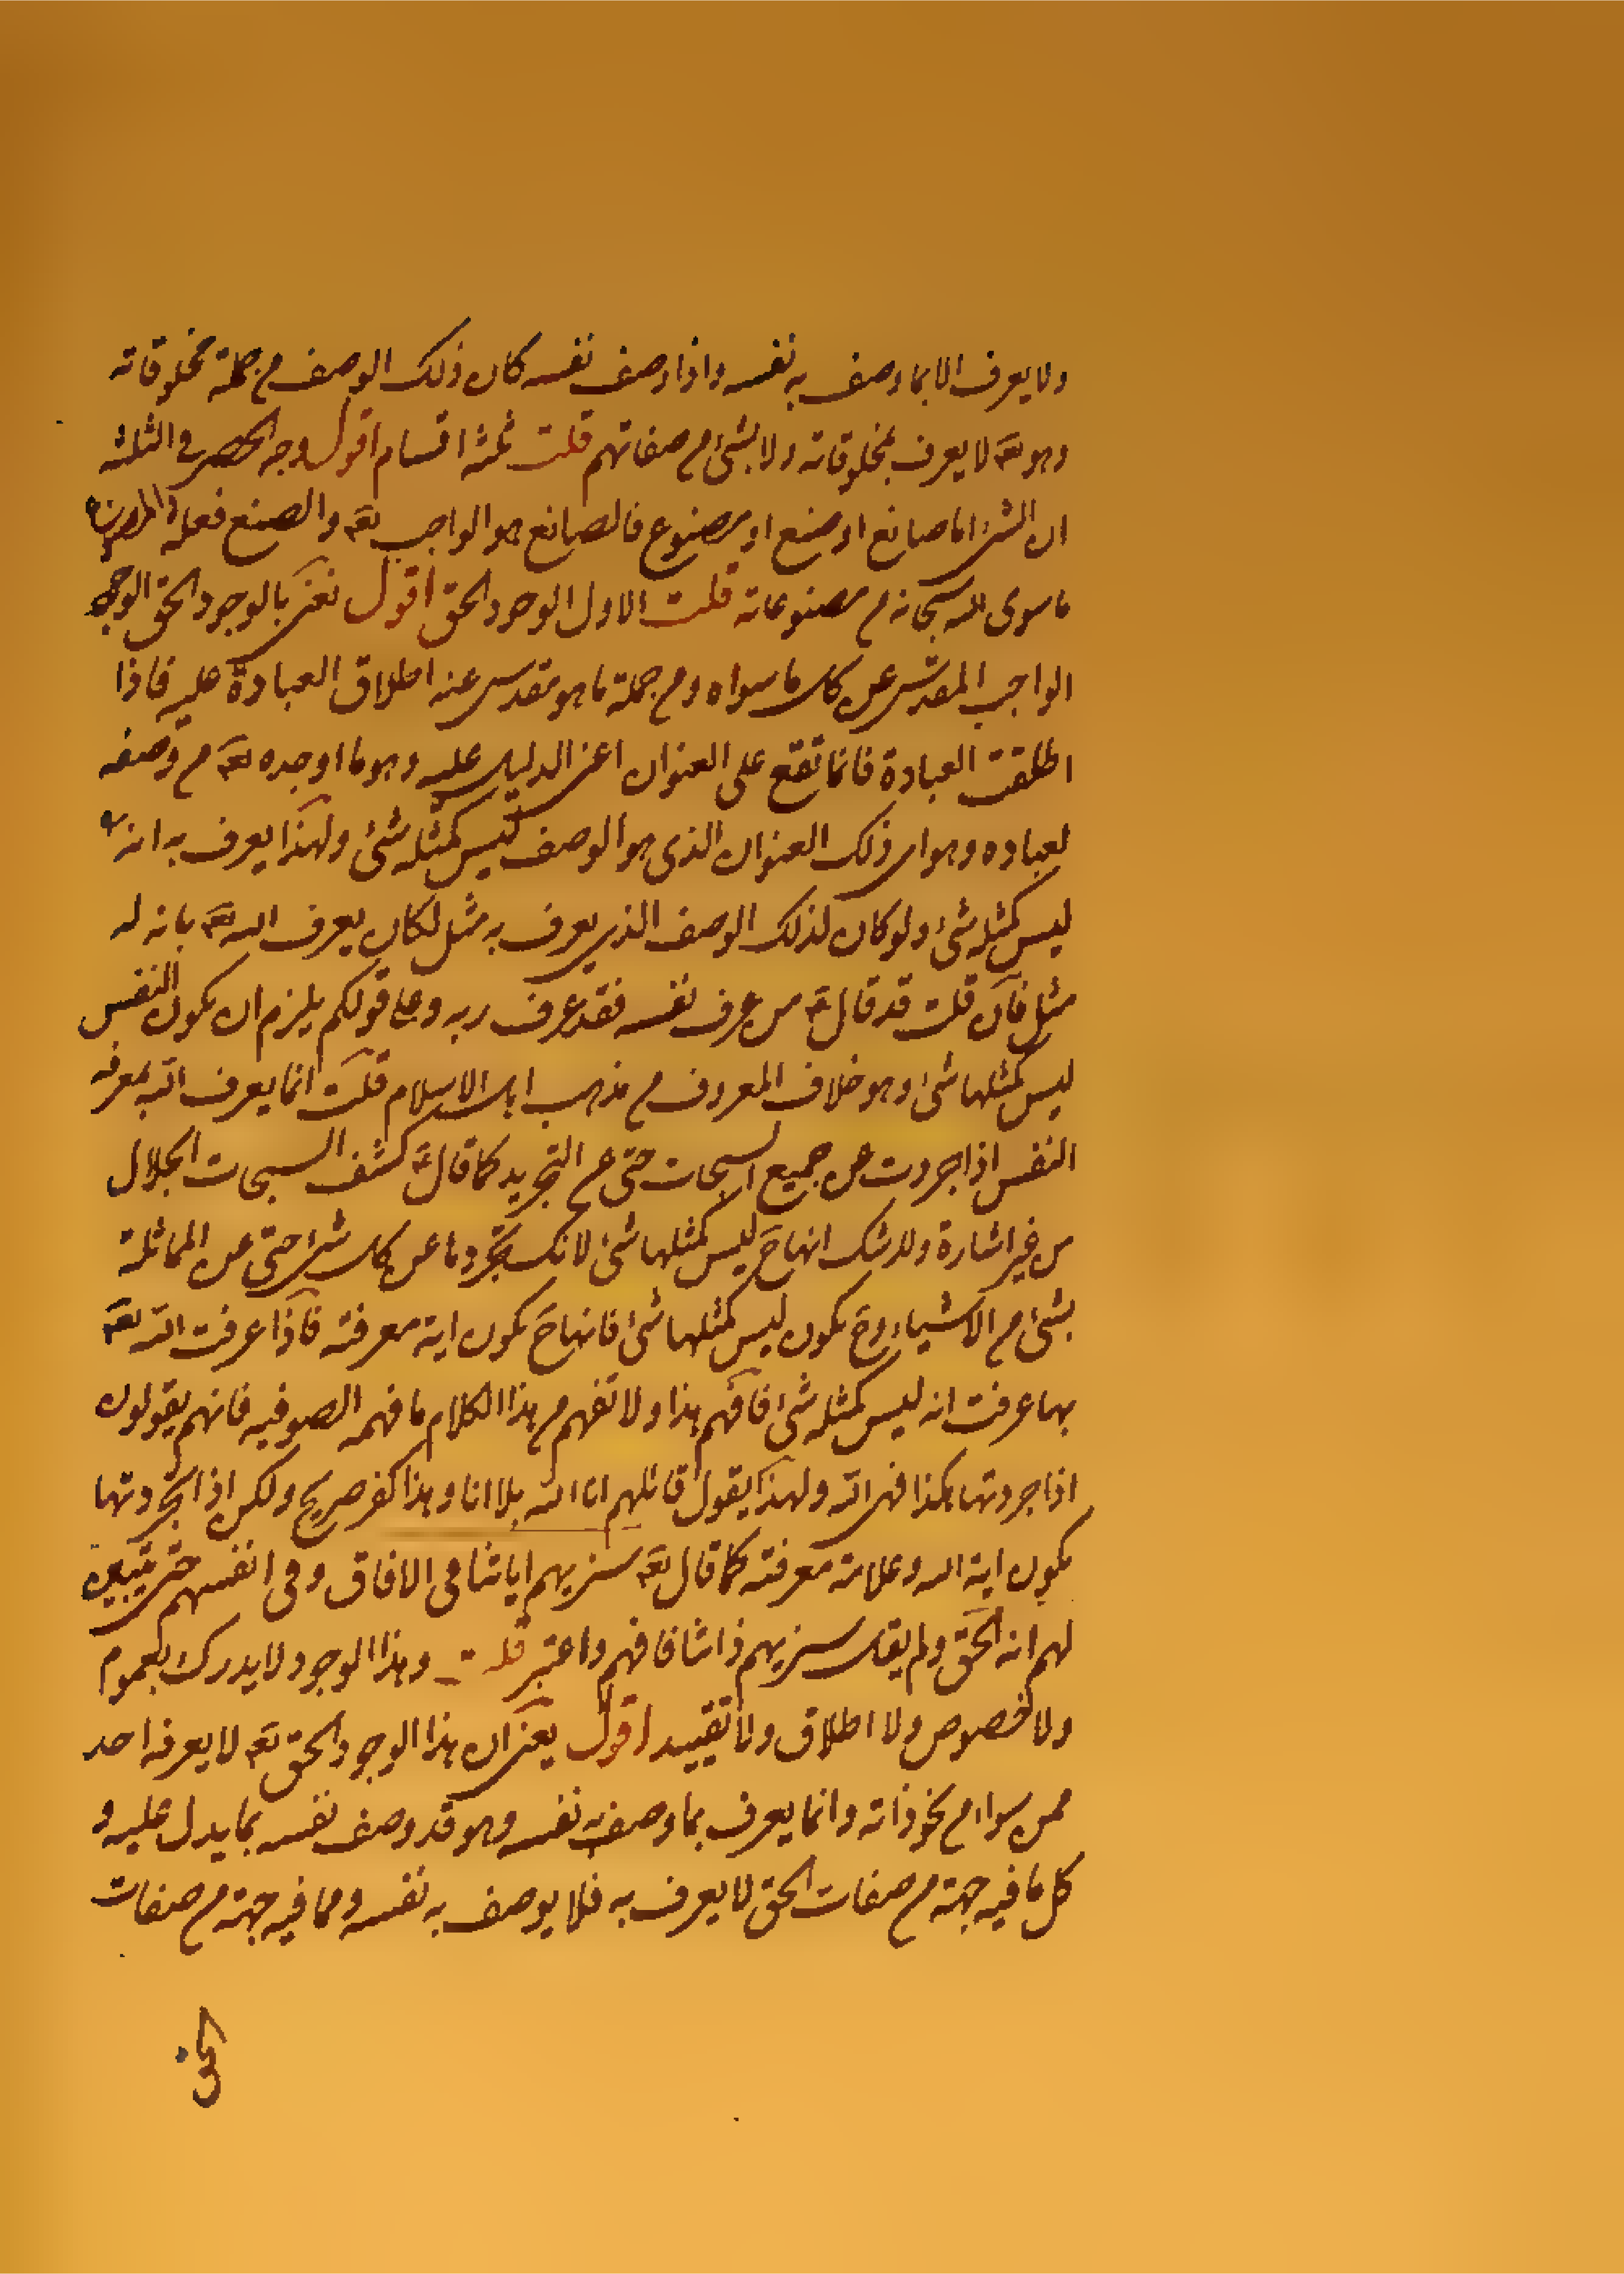 ولا يعرف الا بما وصف به نفسه واذا وصف نفسه كان ذلك الوصف من جملة مخلوقاته
وهو تعه لا يعرف بمخلوقاته ولا بشئ من صفاتهم قلت ثلثة اقسام اقول وجه الحصر فى الثلثة
ان الشئ اما صانع او صنع او مصنوع فالصانع هو الواجب تعه والصنع فعله والمصنوع
ما سوى الله سبحانه من مصنوعاته قلت الاول الوجود الحق اقول نعنى بالوجود الحق الوجود
الواجب المقدس عن كل ما سواه ومن جملة ما هو مقدس عنه اطلاق العبادة عليه فاذا
اطلقت العبادة فانما تقع على العنوان اعنى الدليل عليه وهو ما اوجده تعه من وصفه
لعباده وهو اى ذلك العنوان الذى هو الوصف ليس كمثله شئ ولهذا يعرف به انه
ليس كمثله شئ ولو كان لذلك الوصف الذى يعرف به مثل لكان يعرف الله تعه بانه له
مثل فان قلت قد قال ع من عرف نفسه فقد عرف ربه وعلى قولكم يلزم ان يكون النفس
ليس كمثلها شئ وهو خلاف المعروف من مذهب اهل الاسلام قلت انما يعرف الله بمعرفة
النفس اذا جردت عن جميع السبحات حتى عن التجريد كما قال ع كشف السبحات الجلال
من غير اشارة ولا شك انها ح ليس كمثلها شئ لانك تجردها عن كل شئ حتى عن المماثلة
بشئ من الاشياء وح يكون ليس كمثلها شئ فانها ح يكون اية معرفته فاذا عرفت الله تعه
بها عرفت انه ليس كمثله شئ فافهم هذا ولا تفهم من هذا الكلام ما فهمه الصوفيه فانهم يقولون
اذا جردتها هكذا فهى الله ولهذا يقول قائلهم انا الله بلا انا وهذا كفر صريح ولكن اذا تجردتها
يكون اية الله وعلامة معرفته كما قال تعه سنريهم اياتنا فى الافاق وفى انفسهم حتى يتبين
لهم انه الحق ولم يقل سنريهم ذاتنا فافهم واعتبر قلت وهذا الوجود لا يدرك بعموم
ولا خصوص ولا اطلاق ولا تقييد اقول يعنى ان هذا الوجود الحق تعه لا يعرفه احد
ممن سواه من نحو ذاته وانما يعرف بما وصف به نفسه وهو قد وصف نفسه بما يدل عليه و
كل ما فيه جهة من صفات الحق لا يعرف به فلا يوصف به نفسه ومما فيه جهة من صفات